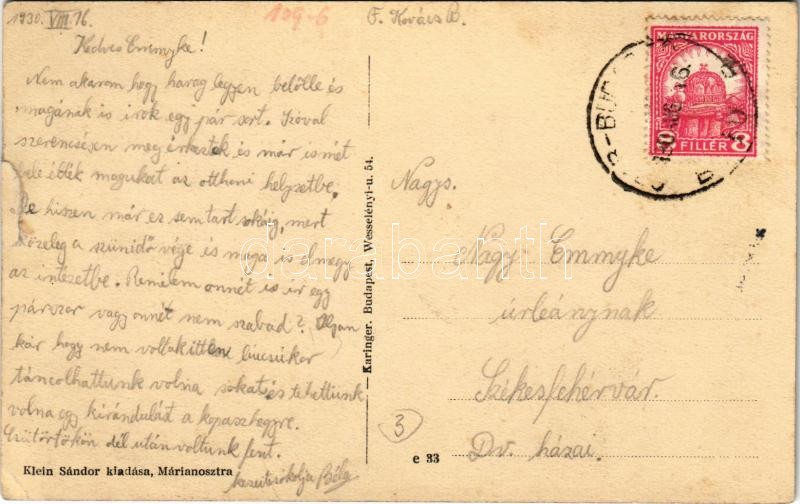 1930. VIII. 16.
109-6
F. Kovács B.
Kedves Emmyke!
Nem akarom hogy harag legyen belölle és
magának is irok egy pár sort. Szóval
szerencsésen megérkeztek és már ismét
bele élték magukat az otthoni helyzetbe.
De hiszen már ez sem tart sokáig, mert
közeleg a szünidő vége és maga is elmegy
az intézetbe. Remélem onnét is ir egy
párszor vagy onnét nem szabad? Olyan
kár hogy nem voltak itten búcsúkor
táncolhattunk volna sokat és tehettünk
volna egy kirándulást a kopaszhegyre.
Csütörtökön dél után voltunk fent.
kezeit csókolja Béla
Klein Sándor kiadása, Márianosztra
Karinger. Budapest, Wesselényi-u. 54.
MAGYARORSZÁG
8 FILLÉR 8
Nagys.
Nagy Emmyke
úrleánynak
Székesfehérvár.
Dv. házai.
3
e 33
darabanth